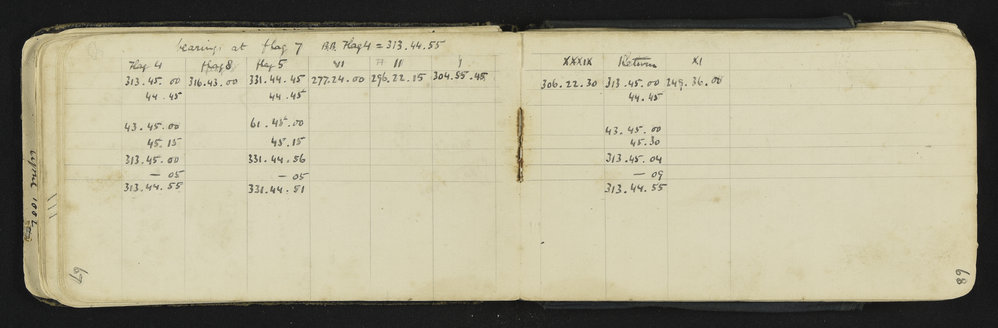 bearings at flag 7 B.B. Flag 4 = 313.44.55
Flag 4 Flag 8 Flag 5 VI II I
313.45.00 316.43.00 331.44.45 277.24.00 296.22.15 304.55.45
44.45 44.45
43.45.00 61.45.00
45.15 45.15
313.45.00 331.44.56
— 05 — 05
313.44.55 331.44.51
67
XXXIX Return XI
306.22.30 313.45.00 249.36.00
44.45
43.45.00
45.30
313.45.04
— 09
313.44.55
68